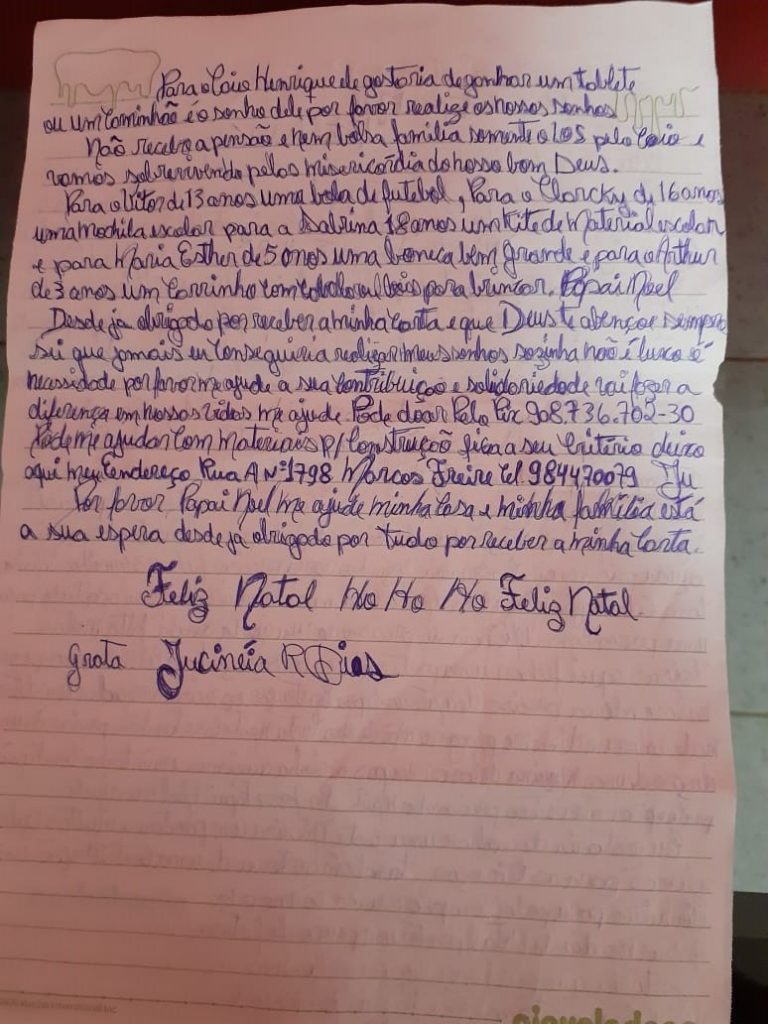 Para o Caio Henrique de gostaria de ganhar um tablete
ou um Caminhão é o sonho dele por favor realize os nossos sonhos
Não recebo a pensão e nem bolsa família somente o LOS pelo Caio e
vamos sobrevivendo pelas misericórdia do nosso bom Deus.
Para o Vitor de 13 anos uma bola de futebol, Para o Clarcky de 16 anos
uma mochila escolar para a Sabrina 18 anos um Kite de Material escolar
e para Maria Esther de 5 anos uma boneca bem grande e para o Arthur
de 3 anos um Carrinho com para brincar. Papai Noel
Desde ja obrigado por receber a minha Carta e que Deus te abençoe sempre
sei que jamais eu Conseguiria realizar meus sonhos sozinha não é luxo é
necessidade por favor me ajude a sua Contribuição e solidariedade vai fazer a
diferença em nossas vidas me ajude Pode doar Pelo Pix 908.736.702-30
Pode me ajudar Com materiais p/ Construção fica a seu Critério deixo
aqui meu Endereço Rua A Nº 1798 Marcos Freire Cel. 984470079 Ju
Por favor Papai Noel me ajude minha Casa e minha família está
a sua espera desde ja obrigado por tudo por receber a minha Carta.
Feliz Natal Ho Ho Ho Feliz Natal
Grata Jucinéia R Dias